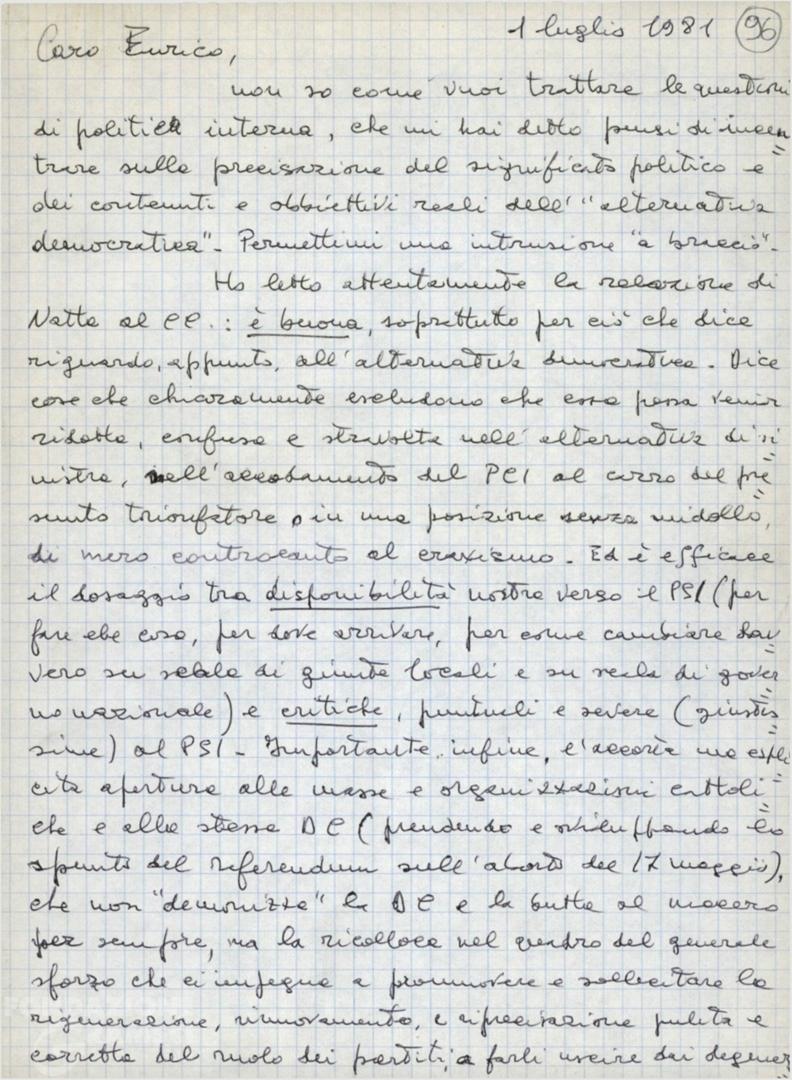 1 luglio 1981 96
Caro Enrico,
non so come vuoi trattare le questioni
di politica interna, che mi hai detto pensi di incen=
trare sulla precisazione del significato politico e
dei contenuti e obbiettivi reali dell'"alternativa
democratica". Permettimi una intrusione "a braccio".
Ho letto attentamente la relazione di
Natta al CC.: è buona, soprattutto per ciò che dice
riguardo, appunto, all'alternativa democratica. Dice
cose che chiaramente escludono che essa possa venir
ridotta, confusa e stravolta nell'alternativa di si=
nistra, nell'accodamento del PCI al carro del pre=
sunto trionfatore, in una posizione senza midollo,
di mero controcanto al craxismo. Ed è efficace
il dosaggio tra disponibilità nostra verso il PSI (per
fare che cosa, per dove arrivare, per come cambiare dav=
vero su scala di giunte locali e su scala di gover=
no nazionale) e critiche, puntuali e severe (giustis=
sime) al PSI. Importante, infine, l'accorta ma espli=
cita apertura alle masse e organizzazioni cattoli=
che e alla stessa DC (prendendo e sviluppando lo
spunto del referendum sull'aborto del 17 maggio),
che non "demonizza" la DC e la butta al macero
per sempre, ma la ricolloca nel quadro del generale
sforzo che ci impegna a promuovere e sollecitare la
rigenerazione, rinnovamento, e riprecisazione pulita e
corretta del ruolo dei partiti, a farli uscire dai degener=